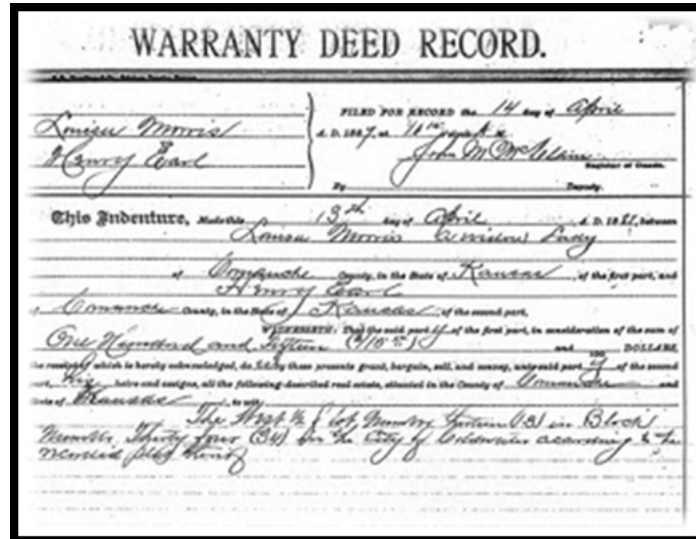 WARRANTY DEED RECORD.
Louisa Morris
to
Henry Earl
FILED FOR RECORD the 14 day of April
A. D. 1887, at
John M
Register of Deeds.
By Deputy.
This Indenture, Made this 13th day of April A. D. 1887, between
Louisa Morris a widow Lady
of Comanche County, in the State of Kansas, of the first part, and
Henry Earl
of Comanche County, in the State of Kansas, of the second part,
WITNESSETH: That the said party of the first part, in consideration of the sum of
One Hundred and Fifteen ($115 00) and DOLLARS,
the receipt of which is hereby acknowledged, do by these presents grant, bargain, sell, and convey, unto said party of the second
part, his heirs and assigns, all the following-described real estate, situated in the County of Comanche and
State of Kansas, to wit:
The West ½ of lot, Number (13) in Block
Number Thirty four (34) in the City of Coldwater according to the
recorded plat thereof